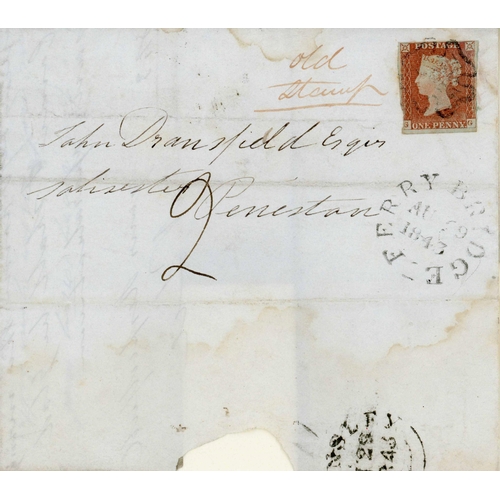 old
Stamp
POSTAGE
ONE PENNY
John Dransfield Esqre
solicitor
Peniston
2
FERRY-BRIDGE
AU 29
1843
NSLEY